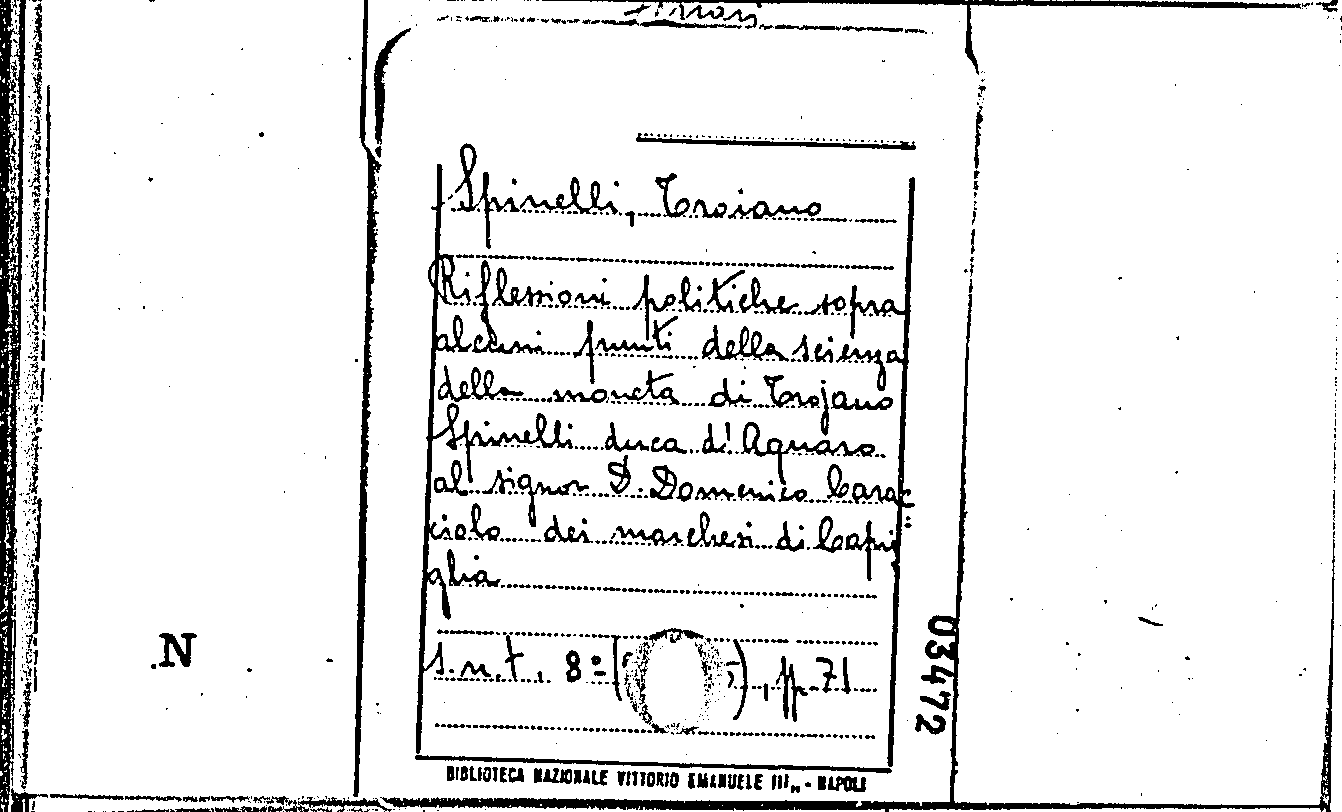 Spinelli, Troiano
Riflessioni politiche sopra
alcuni punti della scienza
della moneta di Trojano
Spinelli duca d'Aquaro
al signor D. Domenico Carac=
ciolo dei marchesi di Capri
glia
s.n.t., 8º ( ), pp. 71
03472
N
BIBLIOTECA NAZIONALE VITTORIO EMANUELE III„ - NAPOLI